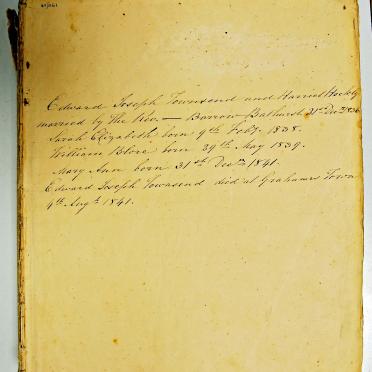 Edward Joseph Townsend and Harriet Hockly
married by the Rev. — Barrow Bathurst 31st Decr 1836
Sarah Elizabeth born 9th Feby. 1838.
William Blore born 29th May 1839.
Mary Ann born 31st Decr 1841.
Edward Joseph Townsend died at Grahams Town
4th Augt 1841.